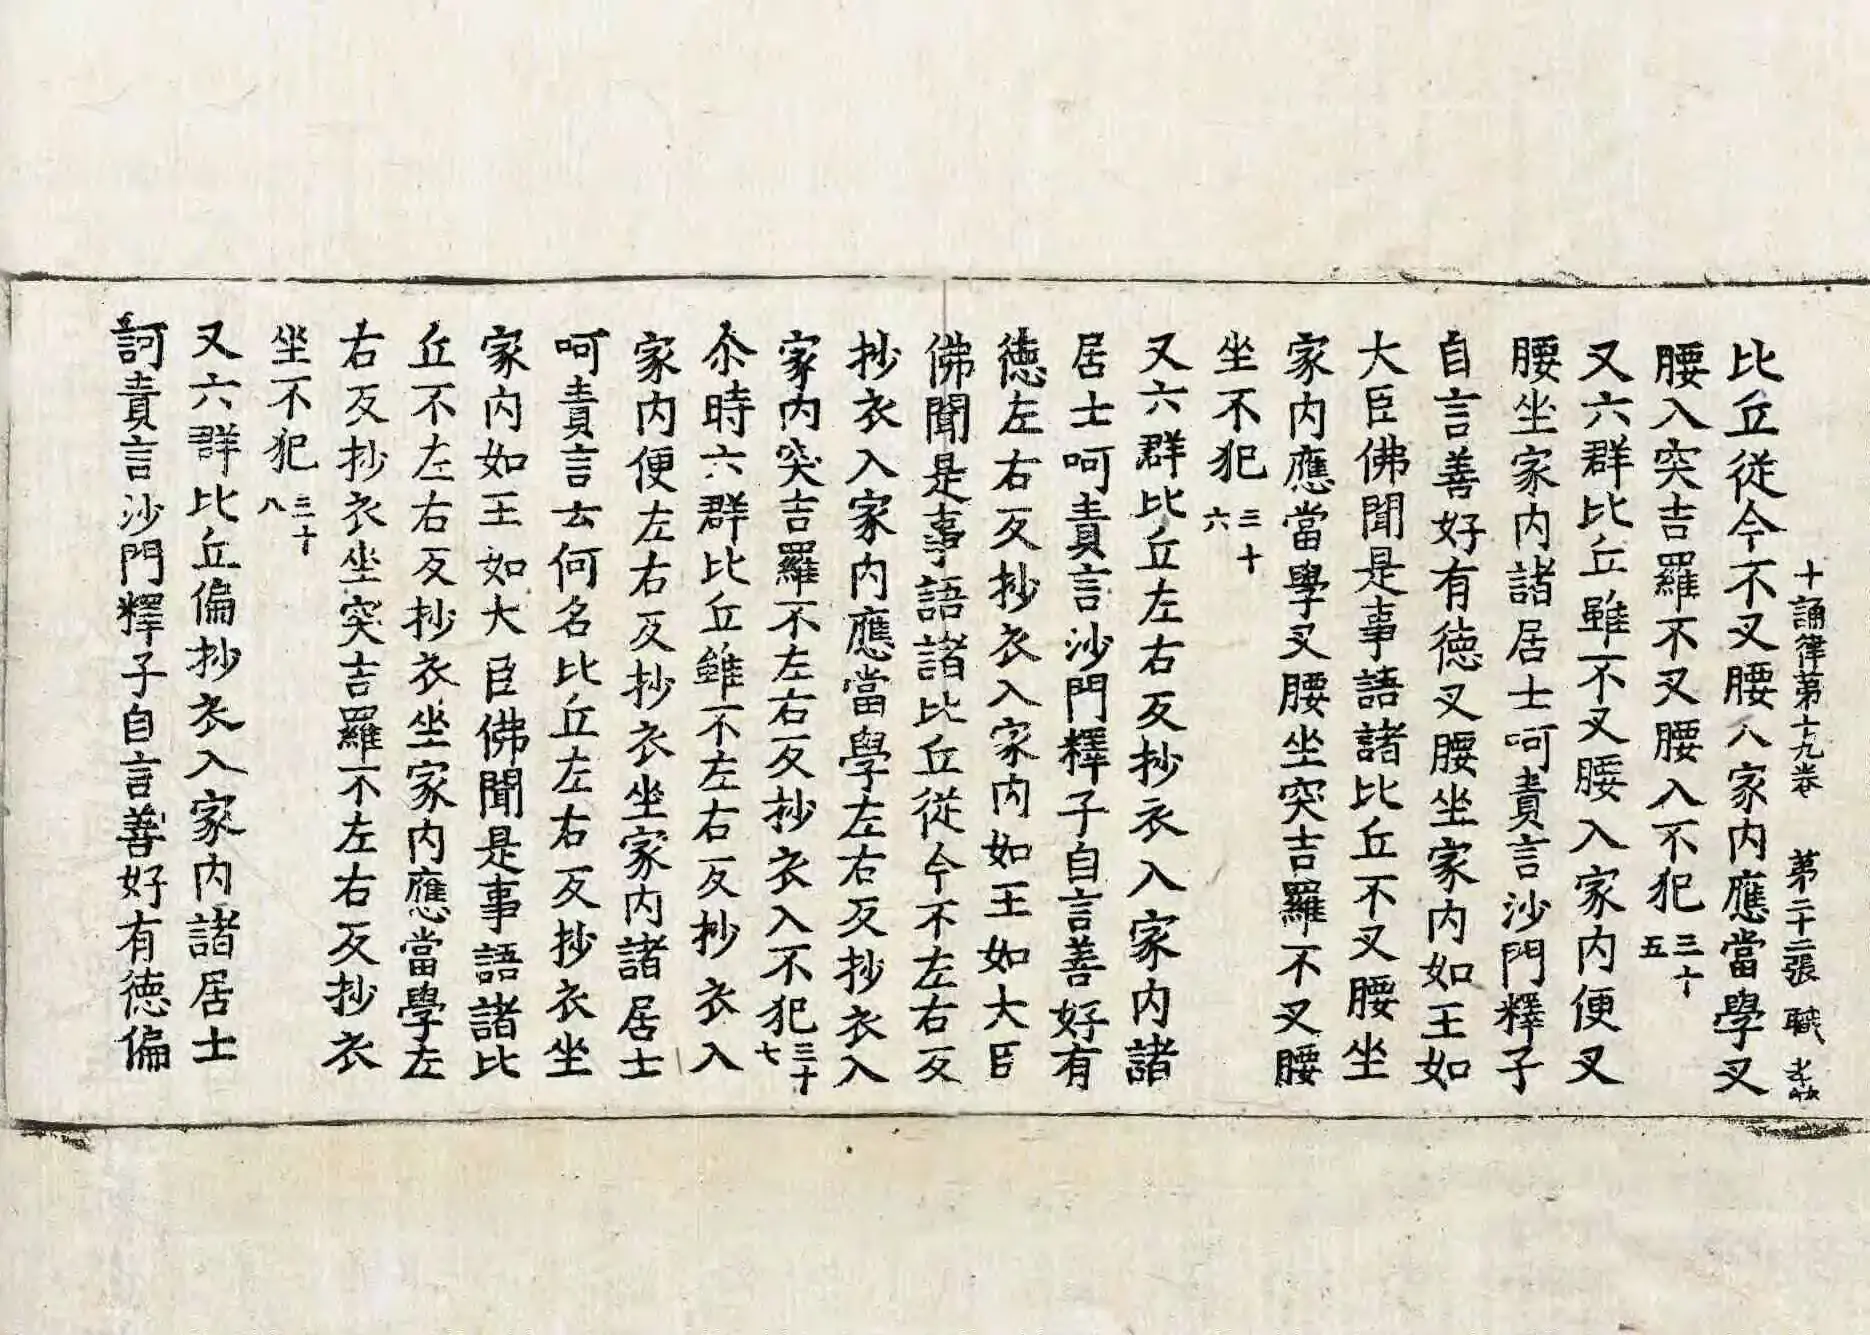 十誦律第十九卷 第二十二張 職
比丘從今不叉腰入家内應當學叉
腰入突吉羅不叉腰入不犯三十五
又六群比丘雖不叉腰入家内便叉
腰坐家内諸居士呵責言沙門釋子
自言善好有徳叉腰坐家内如王如
大臣佛聞是事語諸比丘不叉腰坐
家内應當學叉腰坐突吉羅不叉腰
坐不犯三十六
又六群比丘左右反抄衣入家内諸
居士呵責言沙門釋子自言善好有
徳左右反抄衣入家内如王如大臣
佛聞是事語諸比丘從今不左右反
抄衣入家内應當學左右反抄衣入
家内突吉羅不左右反抄衣入不犯三十七
尒時六群比丘雖不左右反抄衣入
家内便左右反抄衣坐家内諸居士
呵責言云何名比丘左右反抄衣坐
家内如王如大臣佛聞是事語諸比
丘不左右反抄衣坐家内應當學左
右反抄衣坐突吉羅不左右反抄衣
坐不犯三十八
又六群比丘偏抄衣入家内諸居士
訶責言沙門釋子自言善好有徳偏